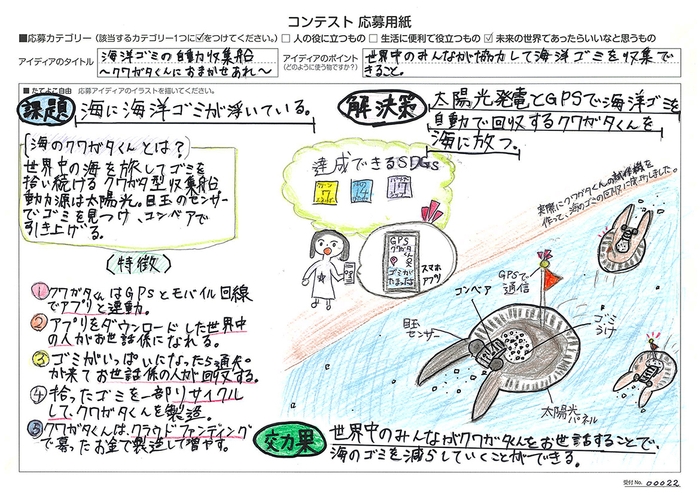 コンテスト 応募用紙
■応募カテゴリー（該当するカテゴリー1つに☑をつけてください。） □ 人の役に立つもの □ 生活に便利で役立つもの ☑ 未来の世界であったらいいなと思うもの
アイディアのタイトル
海洋ゴミの自動収集船
〜クワガタくんにおまかせあれ〜
アイディアのポイント
（どのように使う物ですか？）
世界中のみんなが協力して海洋ゴミを収集で
きること。
■ たてよこ自由 応募アイディアのイラストを描いてください。
課題
海に海洋ゴミが浮いている。
解決策
太陽光発電とGPSで海洋ゴミを
自動で回収するクワガタくんを
海に放つ。
海のクワガタくんとは？
世界中の海を旅してゴミを
拾い続けるクワガタ型収集船
動力源は太陽光。目玉のセンサー
でゴミを見つけ、コンベアで
引き上げる。
達成できるSDGs
7
14
17
GPS
クワガタくん
ゴミが
たまったよ
スマホ
アプリ
実際にクワガタくんの試作機を
作って、海のゴミの回収に成功しました。
GPSで
通信
コンベア
目玉
センサー
ゴミ
うけ
太陽光
パネル
（特徴）
① クワガタくんはGPSとモバイル回線
でアプリと連動。
② アプリをダウンロードした世界中
の人がお世話係になれる。
③ ゴミがいっぱいになったら通知
が来てお世話係の人が回収する。
④ 拾ったゴミを一部リサイクル
して、クワガタくんを製造。
⑤ クワガタくんは、クラウドファンディング
で募ったお金で製造して増やす。
効果
世界中のみんながクワガタくんをお世話することで、
海のゴミを減らしていくことができる。
受付No. 00022